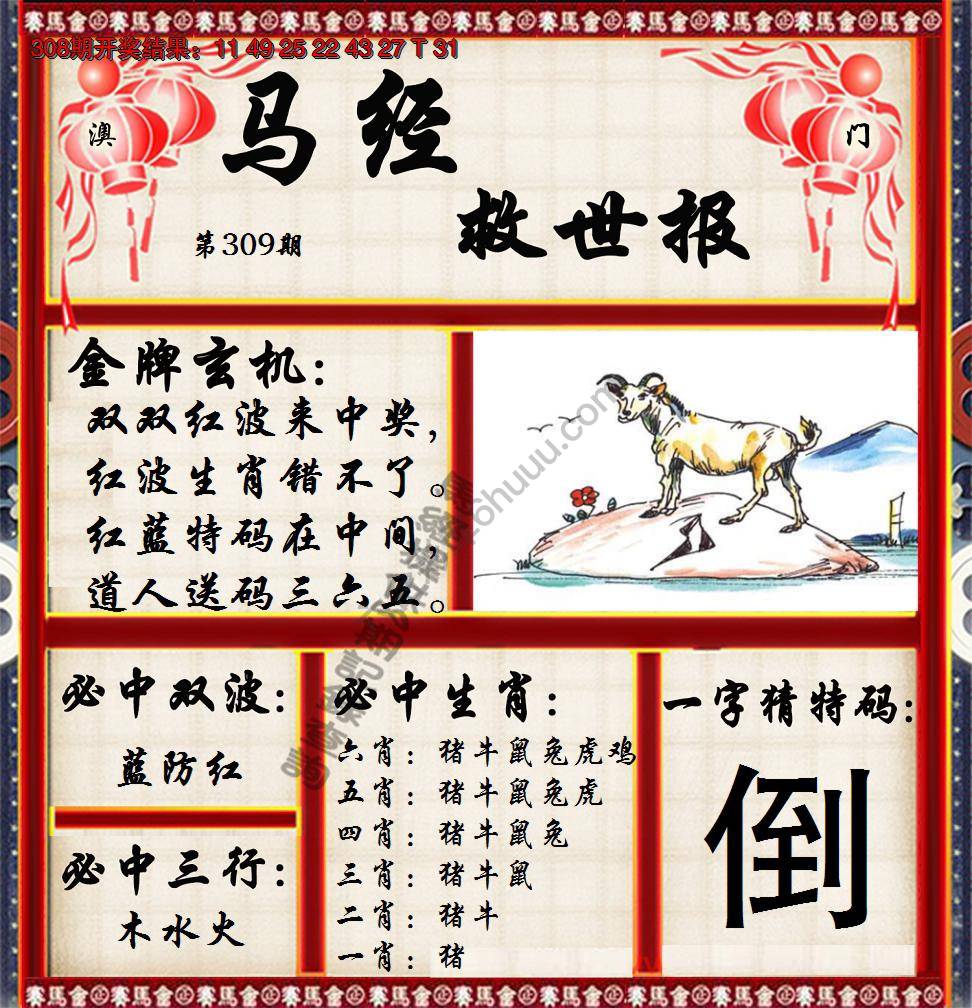 308期开奖结果：11 49 25 22 43 27 T 31
澳 门
马经
救世报
第309期
金牌玄机：
双双红波来中奖，
红波生肖错不了。
红蓝特码在中间，
道人送码三六五。
必中双波：
蓝防红
必中三行：
木水火
必中生肖：
六肖：猪牛鼠兔虎鸡
五肖：猪牛鼠兔虎
四肖：猪牛鼠兔
三肖：猪牛鼠
二肖：猪牛
一肖：猪
一字猜特码：
倒